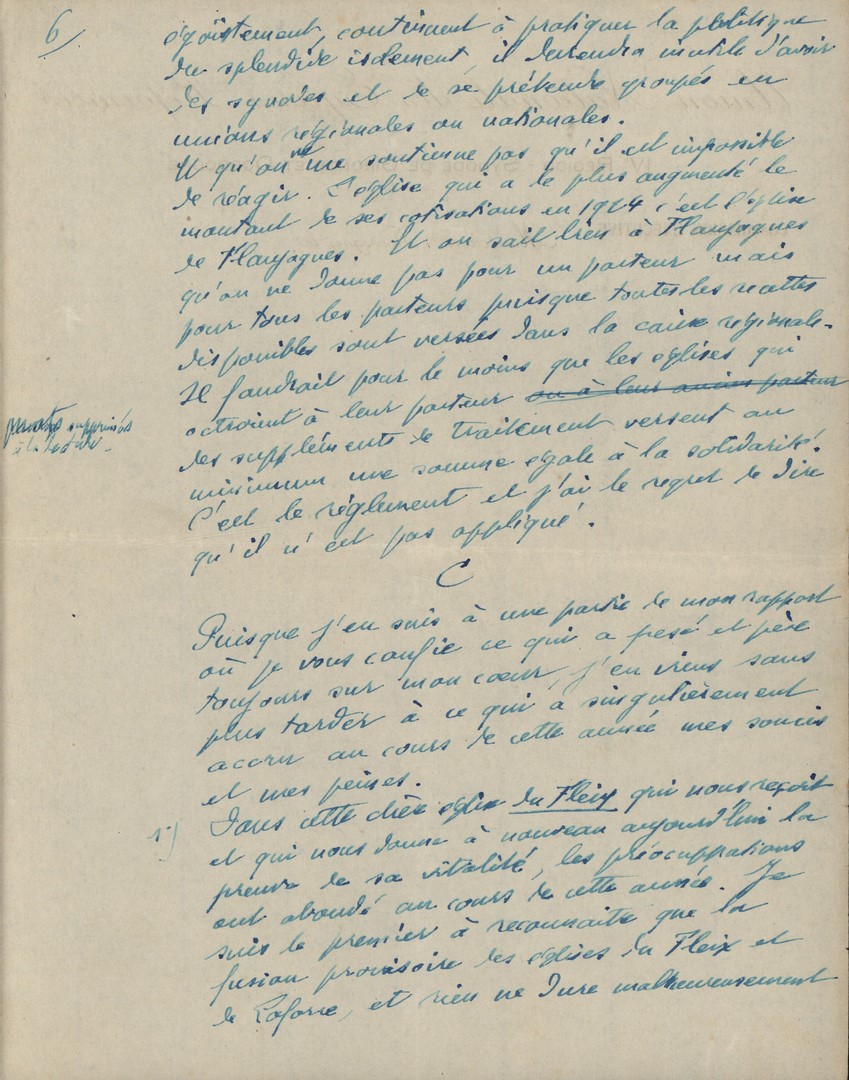 6/
égoïstement, continuent à pratiquer la politique
de splendide isolement, il deviendra inutile d'avoir
des synodes et de se prétendre groupés en
unions régionales ou nationales.
Et qu'on ne me soutienne pas qu'il est impossible
de réagir. L'église qui a le plus augmenté le
montant de ses cotisations en 1924 c'est l'église
de Flaujagues. Et on sait bien à Flaujagues
qu'on ne donne pas pour un pasteur mais
pour tous les pasteurs puisque toutes les recettes
disponibles sont versées dans la caisse régionale.
Il faudrait pour le moins que les églises qui
octroient à leur pasteur ou à leur ancien pasteur
des suppléments de traitement versent au
minimum une somme égale à la solidarité.
C'est le règlement et j'ai le regret de dire
qu'il n'est pas appliqué.
supprimés
à la lecture.
C
Puisque j'en suis à une partie de mon rapport
où je vous confie ce qui a pesé et pèse
toujours sur mon cœur, j'en viens sans
plus tarder à ce qui a singulièrement
accru au cours de cette année mes soucis
et mes peines.
1°) Dans cette chère église du Fleix qui nous reçoit
et qui nous donne à nouveau aujourd'hui la
preuve de sa vitalité, les préoccupations
ont abondé au cours de cette année. Je
suis le premier à reconnaître que la
fusion provisoire des églises du Fleix et
de Laforce, et rien ne dure malheureusement